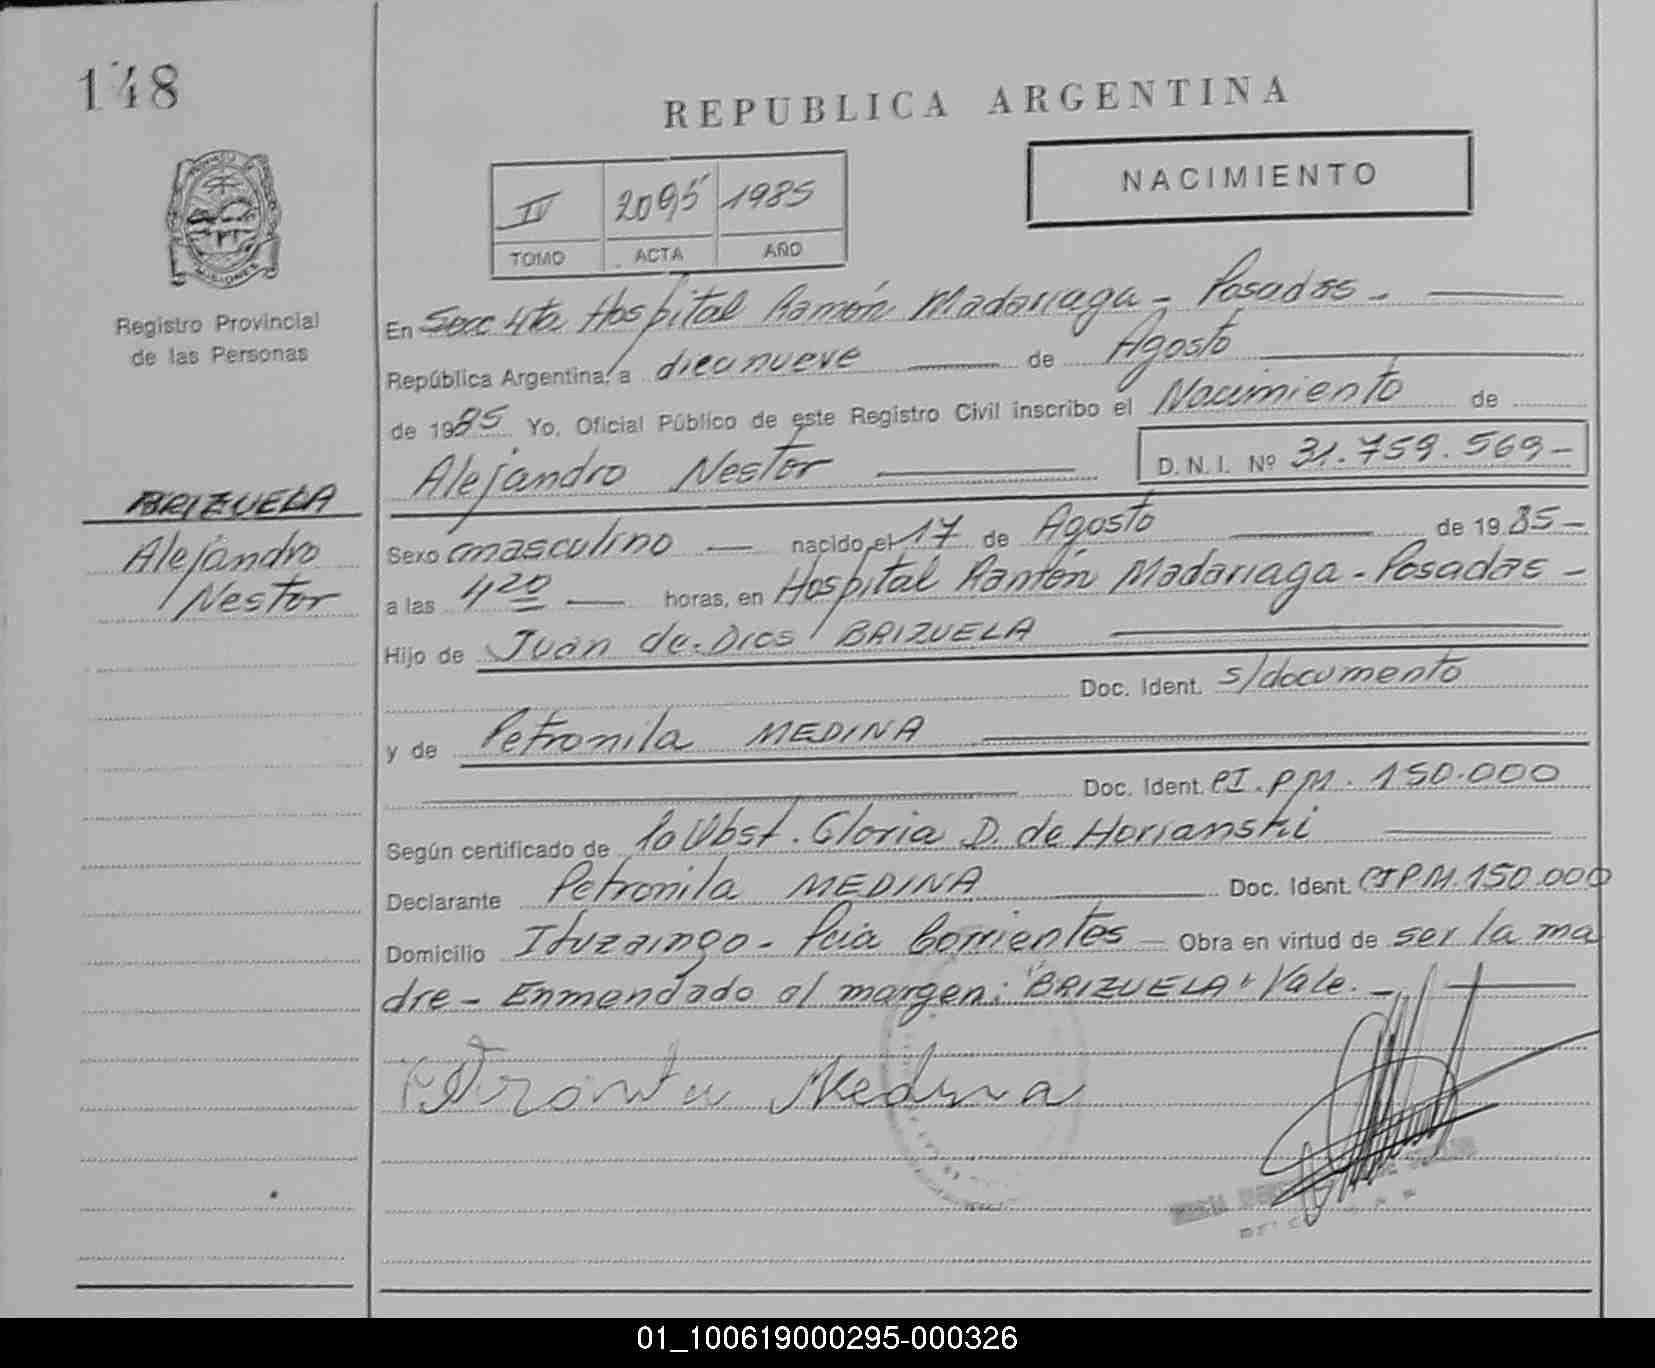 148
REPUBLICA ARGENTINA
NACIMIENTO
IV 2095 1985
TOMO ACTA AÑO
MISIONES
Registro Provincial
de las Personas
En Secc 4ta Hospital Ramón Madariaga - Posadas -
República Argentina, a diecinueve de Agosto
de 1985 Yo, Oficial Público de este Registro Civil inscribo el Nacimiento de
Alejandro Nestor D.N.I. Nº 31.759.569-
BRIZUELA
Alejandro
Nestor
Sexo masculino nacido el 17 de Agosto de 1985-
a las 4 20 horas, en Hospital Ramón Madariaga - Posadas -
Hijo de Juan de Dios BRIZUELA
Doc. Ident. s/documento
y de Petronila MEDINA
Doc. Ident. CI.PM. 150.000
Según certificado de la Obst. Gloria D. de Horianski
Declarante Petronila MEDINA Doc. Ident. CIPM.150.000
Domicilio Ituzaingo - Pcia Corrientes - Obra en virtud de ser la ma
dre - Enmendado al margen: "BRIZUELA" Vale. -
Medina
01_100619000295-000326